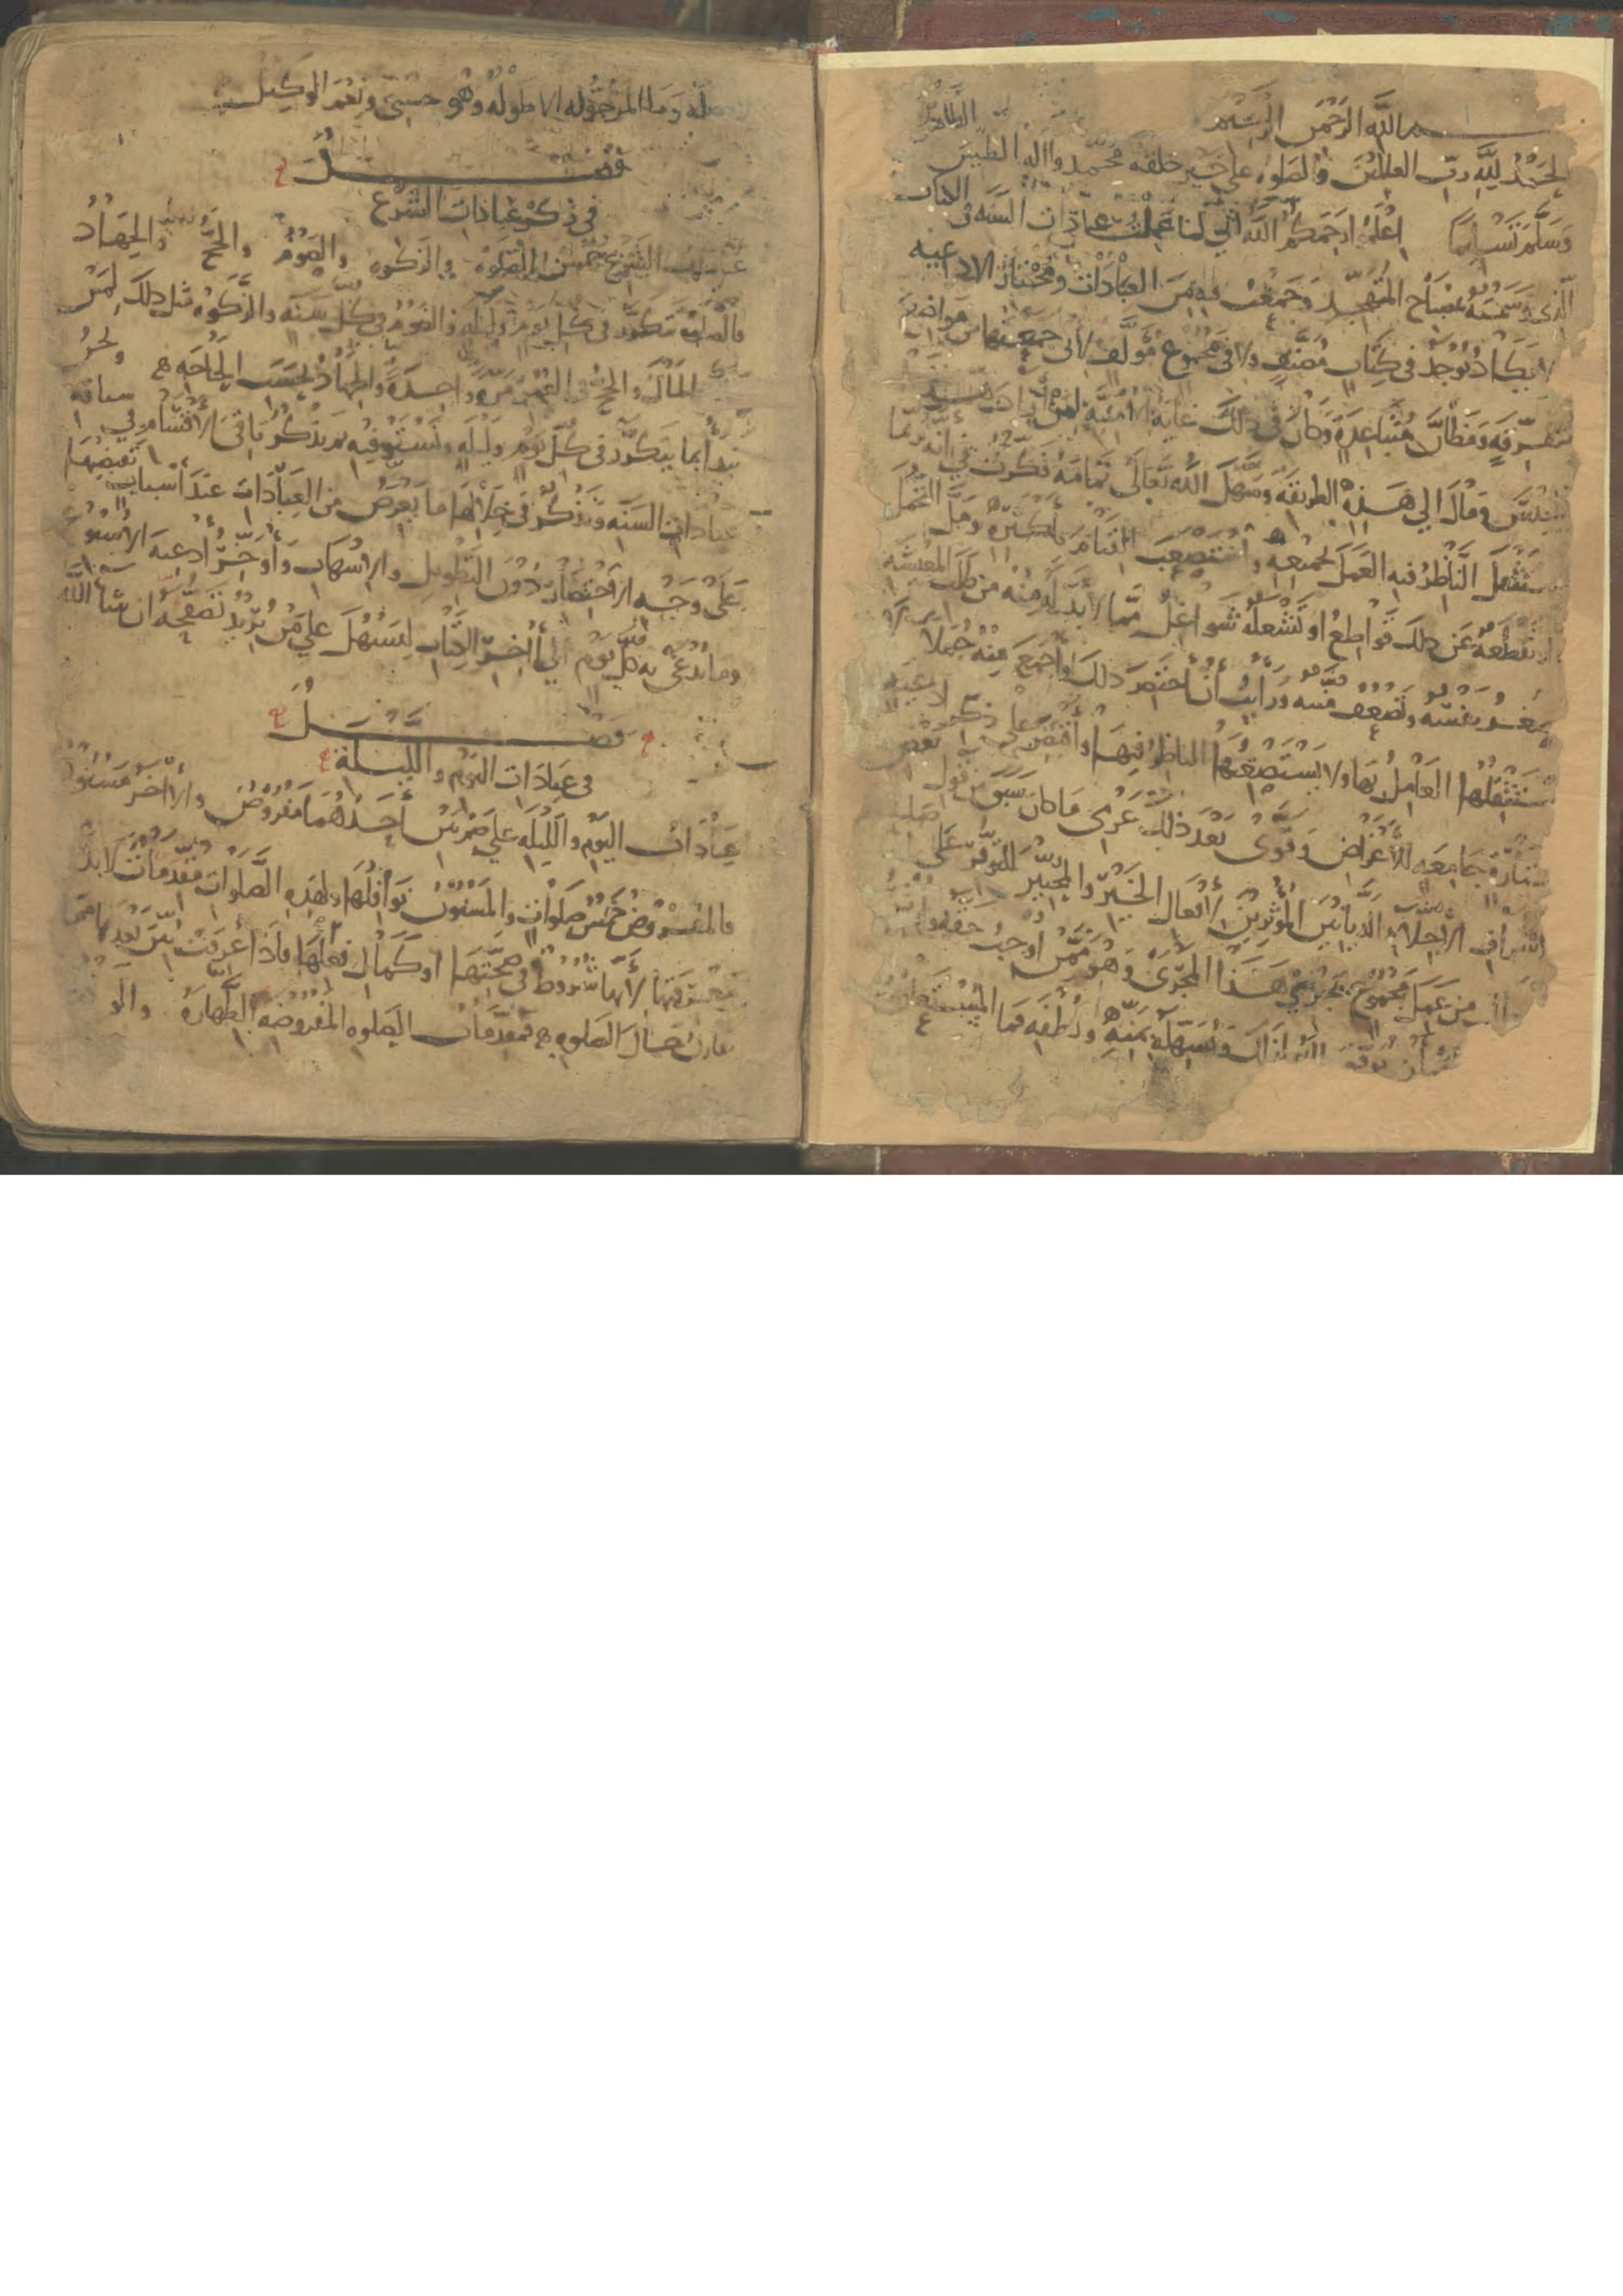 بسم الله الرحمن الرحيم
الحمد لله رب العالمين والصلوه على خير خلقه محمد واله الطيبين الطاهرين
وسلم تسليما اعلموا رحمكم الله اني لما عملت عبادات السنه في الكتاب
الذي وسمته بمصباح المتهجد وجمعت فيه من العبادات ومختار الادعيه
لا يكاد يوجد في كتاب مصنف ولا في مجموع مولف لاني جمعتها من مواضع
متفرقه ومظان متباعدة وكان في ذلك غاية الامنيه لمن
ومال الي هذه الطريقه وسهل الله تعالى تمامه فكرت في انه ربما
يستثقل الناظر فيه العمل بجميعه واستصعب القيام باكثره ومل التحمل
او تقطعه عن ذلك قواطع او تشغله شواغل مما لا بد له منه من طلب المعيشه
وتضعف منته ورايت أن أختصر ذلك واجمع منه جملا لا
يستثقلها العامل بها ولا يستصعبها الناظر فيها وأقتصر على ذكر ادعية
مختارة جامعه للأغراض وقوى بعد ذلك عزمي ما كان سبق من قول بعض
اشراف الأجلاء الديانين المؤثرين لأفعال الخير والمجبين للتوفر على
من عمل مجموع يجري هذا المجرى وهو ممن أوجب حقه
ان يوفق الله لذلك ويسهله بمنه ولطفه فما المستعان
وما المرجو له الا طوله وهو حسبي ونعم الوكيل
فصل
في ذكر عبادات الشرع
عبادات الشرع خمس الصلوة والزكوه والصوم والحج والجهاد
فالصلوة تتكرر في كل يوم وليله والصوم في كل سنه والزكوه مثل ذلك لمن
المال والحج في العمر مرة واحدة والجهاد بحسب الحاجه ونحن
نبدأ بما يتكرر في كل يوم وليله ونستوفيه ثم نذكر باقي الأقسام في سياقه
عبادات السنه ونذكر في خلالها ما يعرض من العبادات عند أسباب تقتضيها
على وجه الاختصار دون التطويل والاسهاب وأوخر أدعيه الأسبوع
وما يدعى به كل يوم الى أخر الكتاب ليسهل على من يريد تصفحه ان شا الله
فصل
في عبادات اليوم والليلة
عبادات اليوم والليله على ضربين أحدهما مفروض والأخر مسنون
فالمفروض خمس صلوات والمسنون نوافلها ولهذه الصلوات مقدمات لابد
من معرفتها لأنها شروط في صحتها او كمال فعلها فاذا عرفت نبين بعدها
يقارن حال الصلوه فمقدمات الصلوه المفروضه الطهارة والو